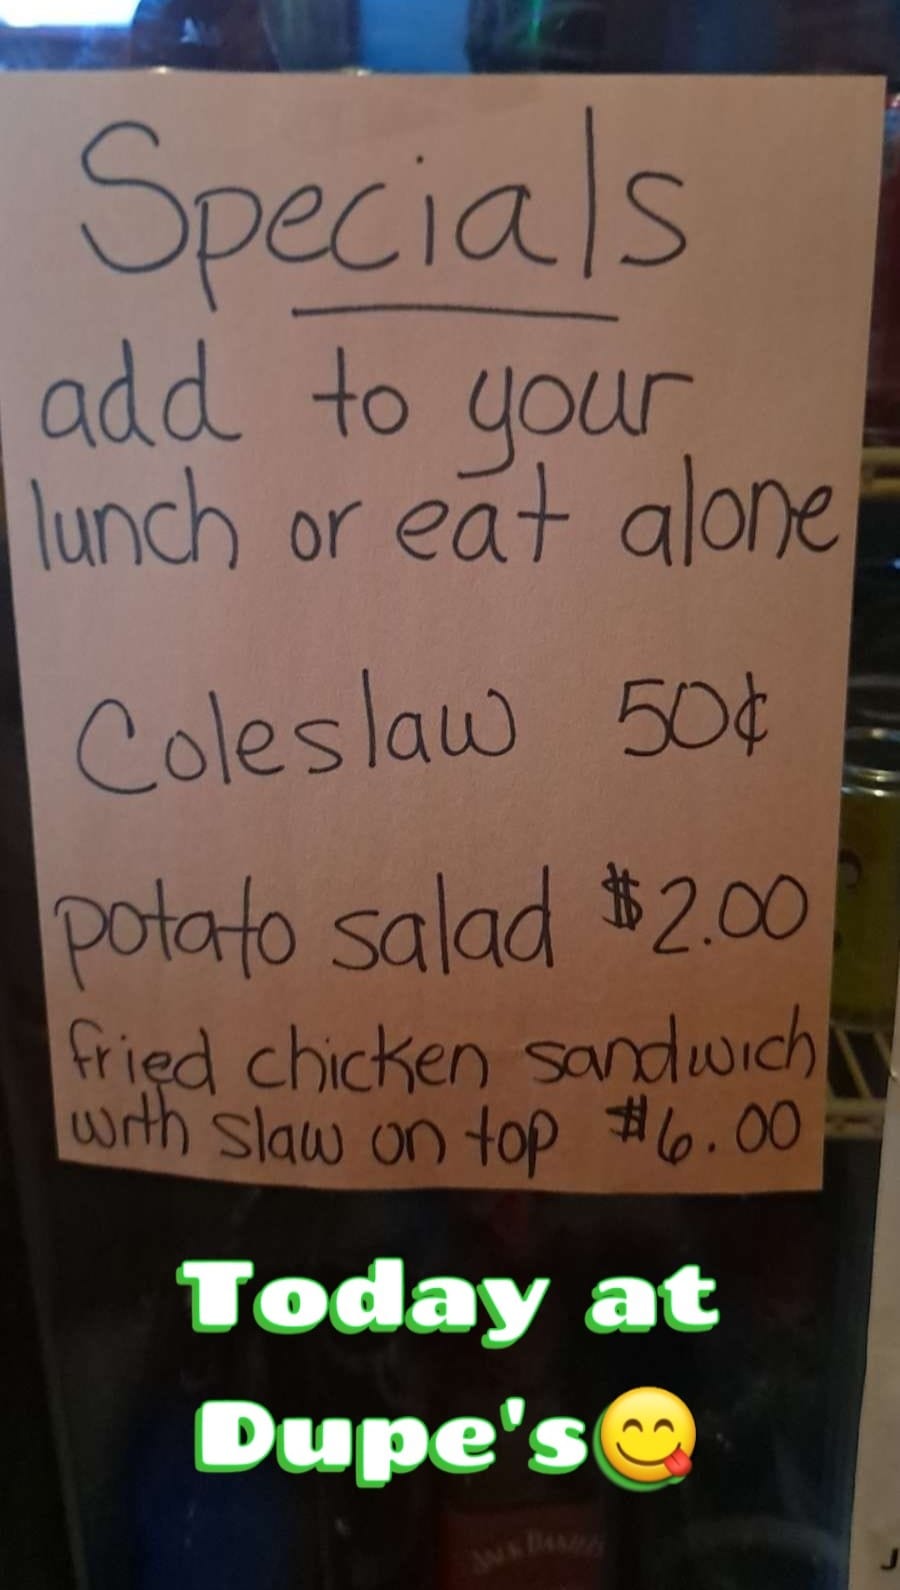 Specials
add to your
lunch or eat alone
Coleslaw 50¢
potato salad $2.00
fried chicken sandwich
with slaw on top $6.00
Today at
Dupe's😋
JACK DANIEL'S
J